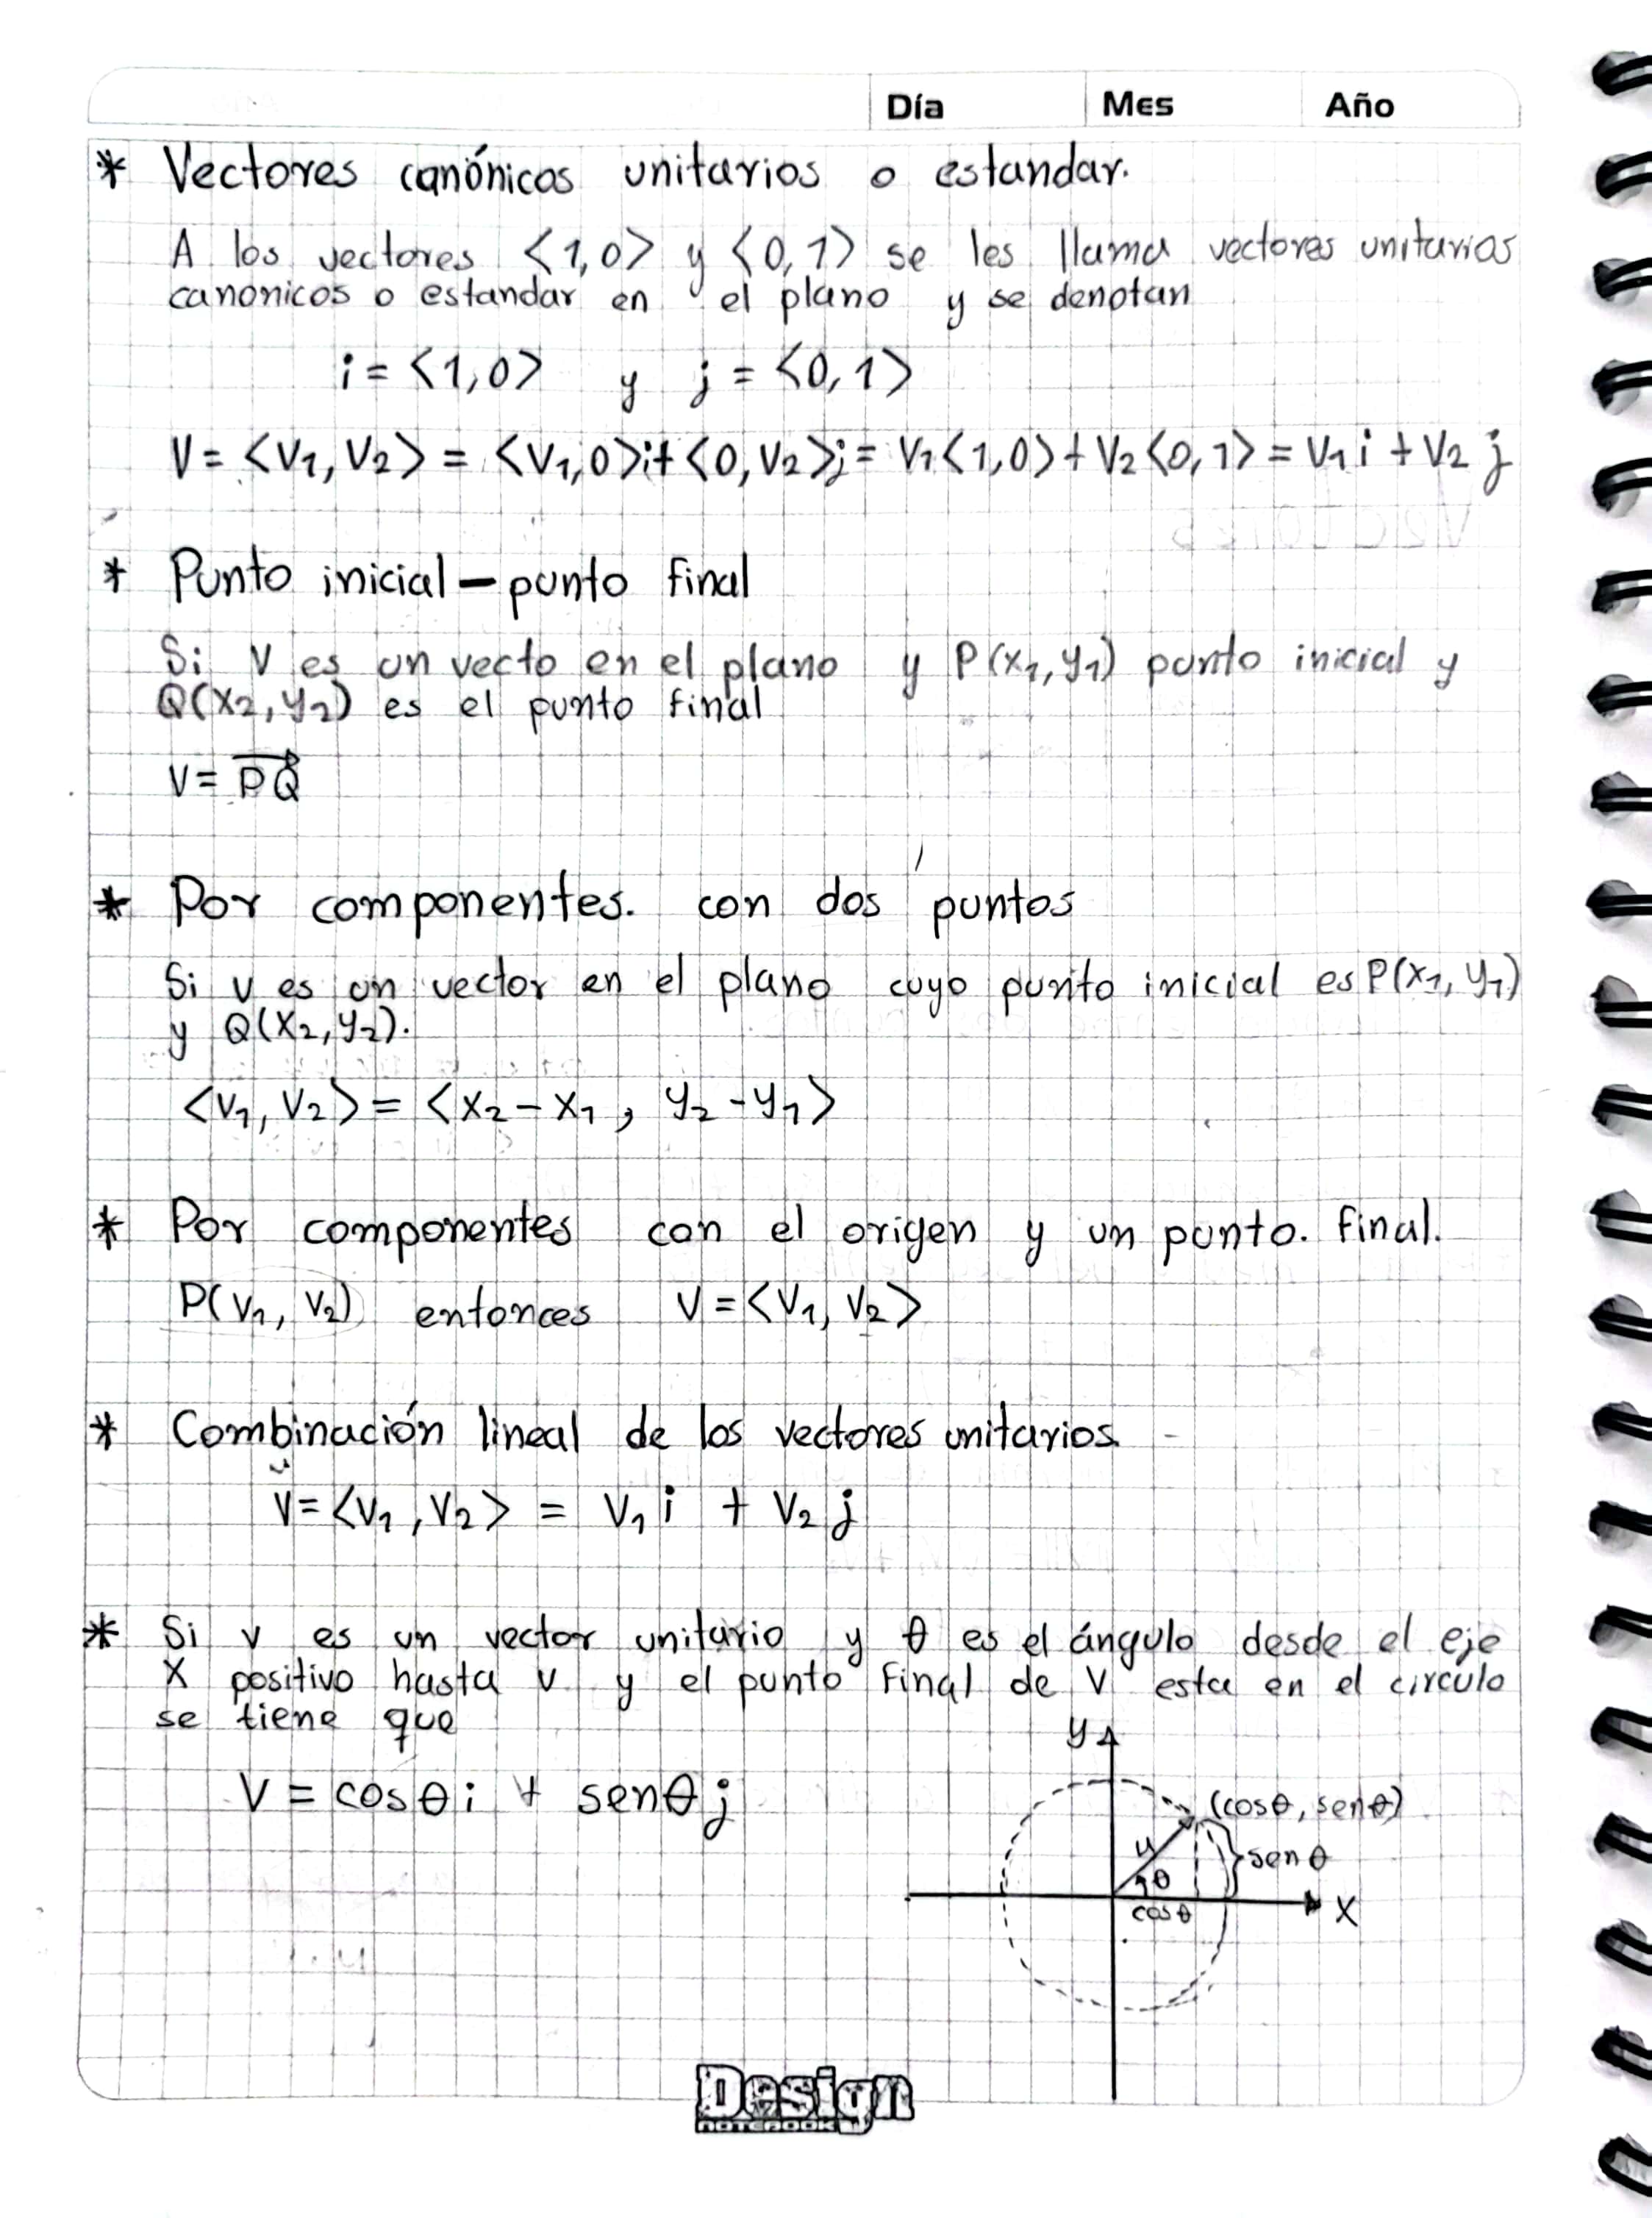 Día Mes Año
* Vectores canónicos unitarios o estandar.
A los vectores <1,0> y <0,1> se les llama vectores unitarios
canonicos o estandar en el plano y se denotan
i = <1,0> y j = <0,1>
V = <V₁, V₂> = <V₁,0>i + <0,V₂>j = V₁<1,0> + V₂<0,1> = V₁ i + V₂ j
* Punto inicial - punto final
Si V es un vecto en el plano y P(x₁, y₁) punto inicial y
Q(x₂, y₂) es el punto final
V = \overrightarrow{PQ}
* Por componentes. con dos puntos
Si v es un vector en el plano cuyo punto inicial es P(x₁, y₁)
y Q(x₂, y₂).
<v₁, v₂> = <x₂ - x₁, y₂ - y₁>
* Por componentes con el origen y un punto. Final.
P(v₁, v₂) entonces V = <V₁, V₂>
* Combinación lineal de los vectores unitarios
V = <v₁, v₂> = V₁ i + V₂ j
* Si v es un vector unitario y θ es el ángulo desde el eje
X positivo hasta v y el punto Final de V esta en el circulo
se tiene que
V = cosθ i + senθ j
y
(cosθ, senθ)
u
senθ
θ
cosθ
X
Design
NOTEBOOK